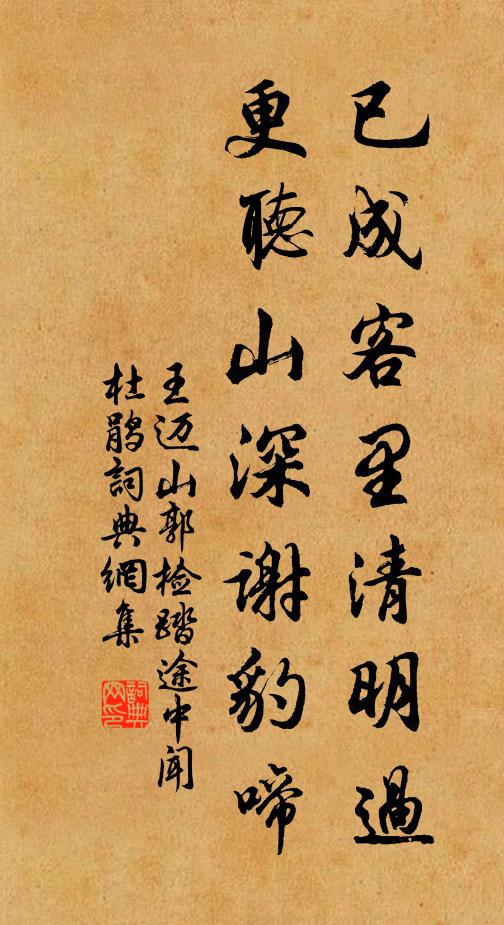 已成客里清明過
更聽山深谢豹啼
王迈山郭检踏途中闻
杜鹃詞典網集
詞典网印